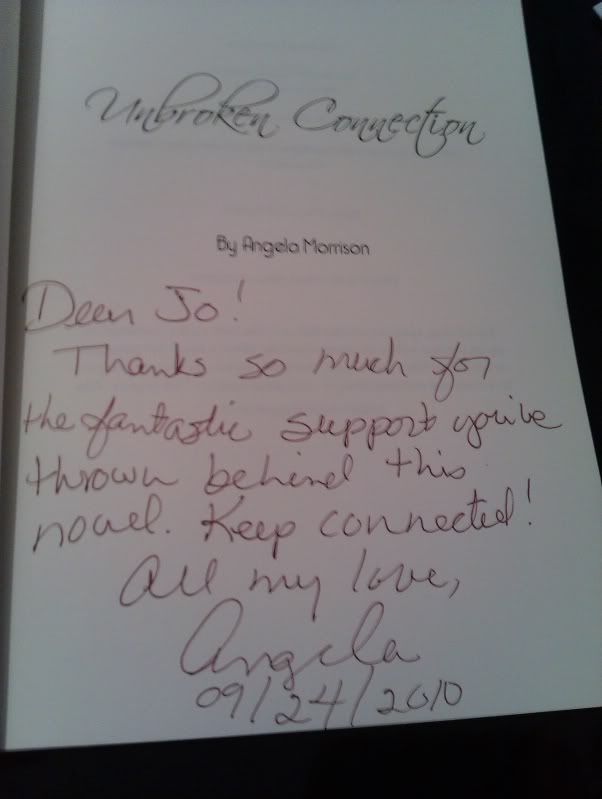 Unbroken Connection
By Angela Morrison
Dear Jo!
Thanks so much for
the fantastic support you've
thrown behind this
novel. Keep connected!
All my love,
Angela
09/24/2010